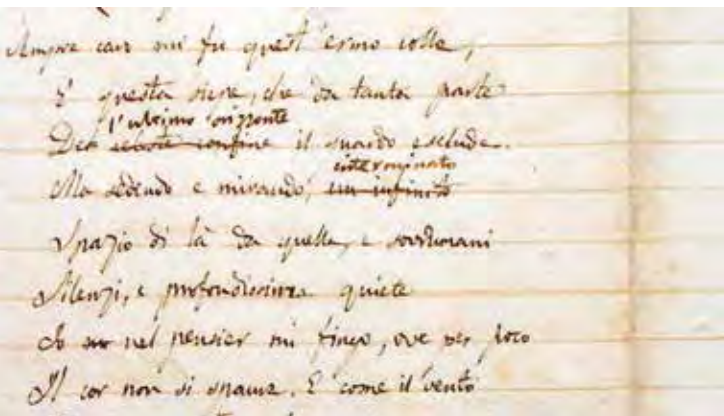 Sempre caro mi fu quest'ermo colle,
E questa siepe, che da tanta parte
l'ultimo orizzonte
Del celeste confine il guardo esclude.
interminato
Ma sedendo e mirando, un infinito
Spazio di là da quella, e sovrumani
Silenzi, e profondissima quiete
Io nel pensier mi fingo, ove per poco
Il cor non si spaura. E come il vento